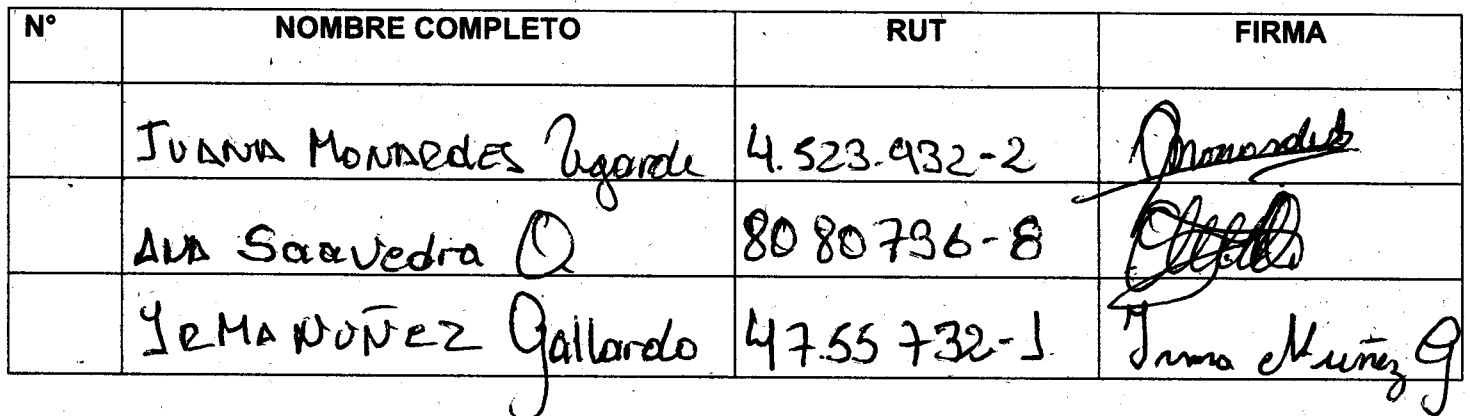 N° NOMBRE COMPLETO RUT FIRMA
JUANA MONARDES Ugarde 4.523.932-2 Monardes
ANA Saavedra O 8080796-8
IRMA NUÑEZ Gallardo 47.55 732-1 Irma Nuñez G